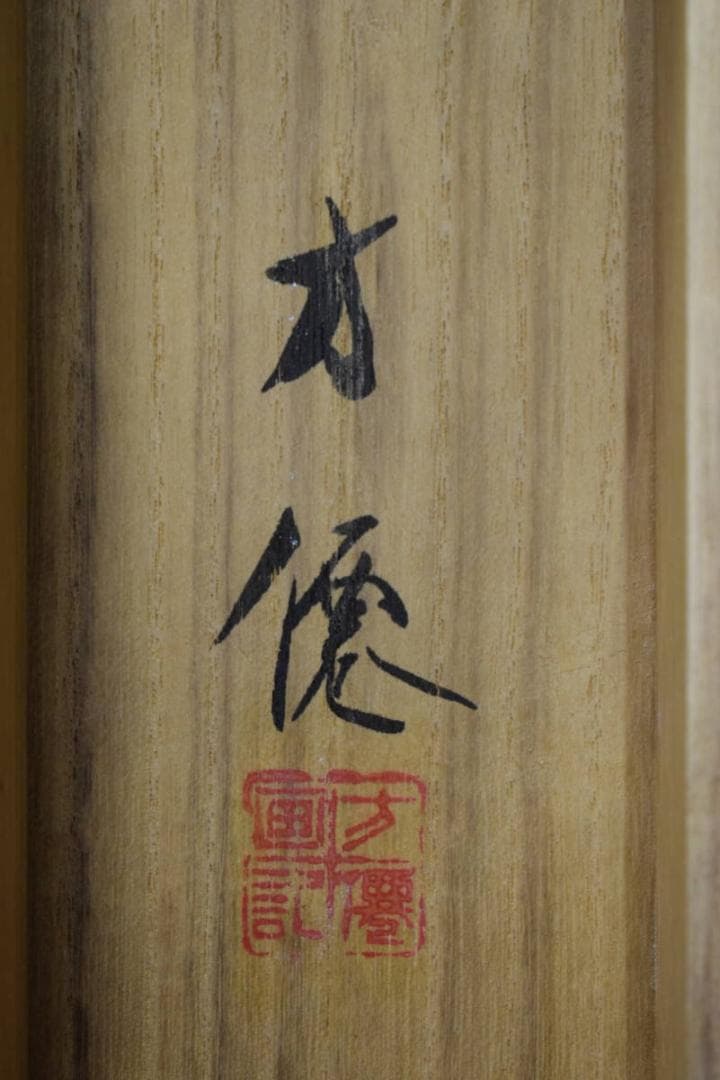 方僊
方僊
画記